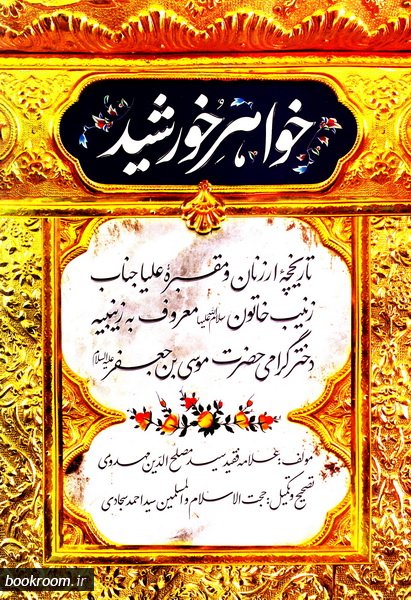 خواهر خورشید
تاریخچهٔ ارزنان و مقبرهٔ علیا جناب
زینب خاتون سلام‌الله‌علیها معروف به زینبیه
دختر گرامی حضرت موسی بن جعفر علیه‌السلام
مولف: علامه فقید سید مصلح الدین مهدوی
تصحیح و تکمیل: حجت الاسلام والمسلمین سید احمد سجادی
bookroom.ir